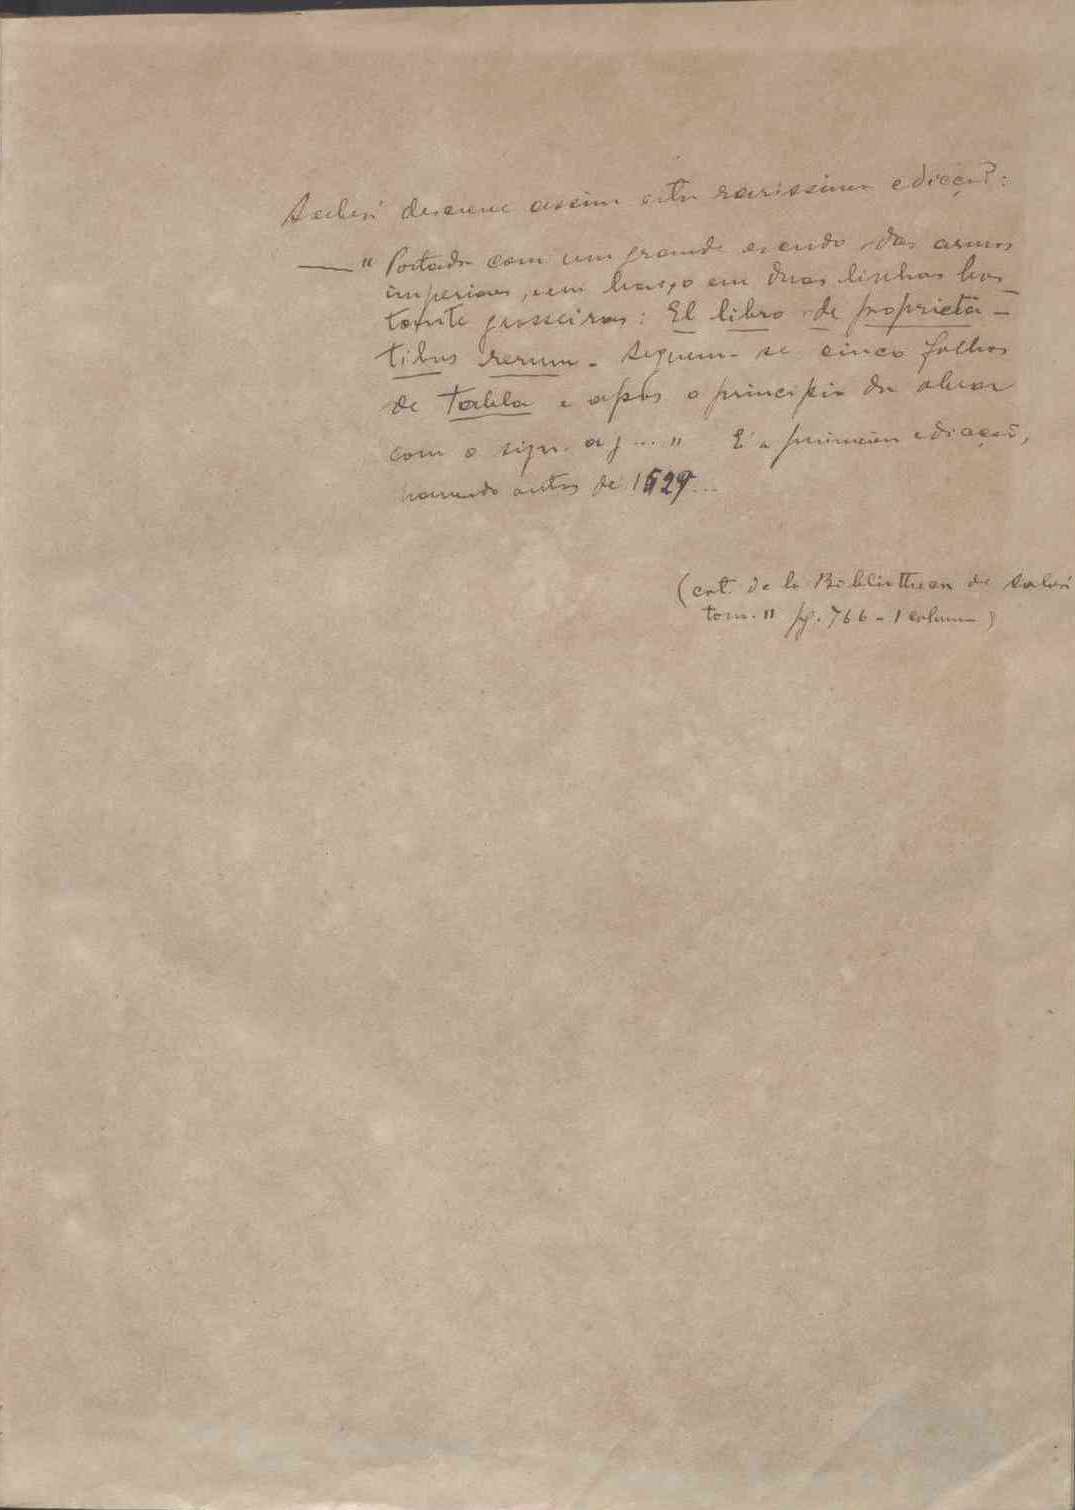 Salvá descreve assim esta rarissima edicção:
— " Portada com um grande escudo das armas
imperiaes, e em baixo em duas linhas bas
tante grosseiras: El libro de proprieta-
tibus rerum - Seguem-se cinco folhas
de Tabla e após o principio da obra
com o sign. a j ... " É a primeira edicção,
antes de 1529...
(cat. de la Bibliotheca de Salvá
tom. II pg. 766 - 1 columna)